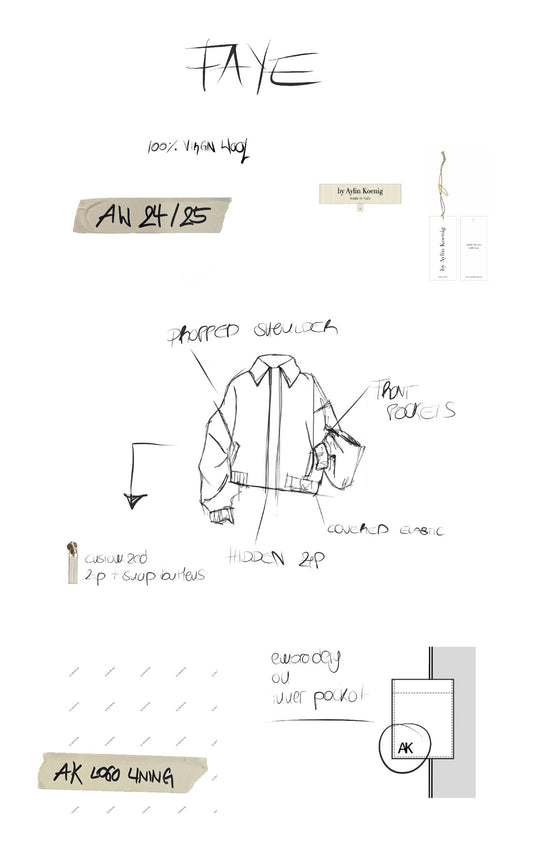 FAYE
100% VIRGIN WOOL
AW 24/25
by Aylin Koenig
made in Italy
by Aylin Koenig
DROPPED SHOULDER
FRONT
POCKETS
COVERED ELASTIC
HIDDEN ZIP
customized
zip + snap buttons
embroidery
on
inner pocket
AK
AK LOGO LINING